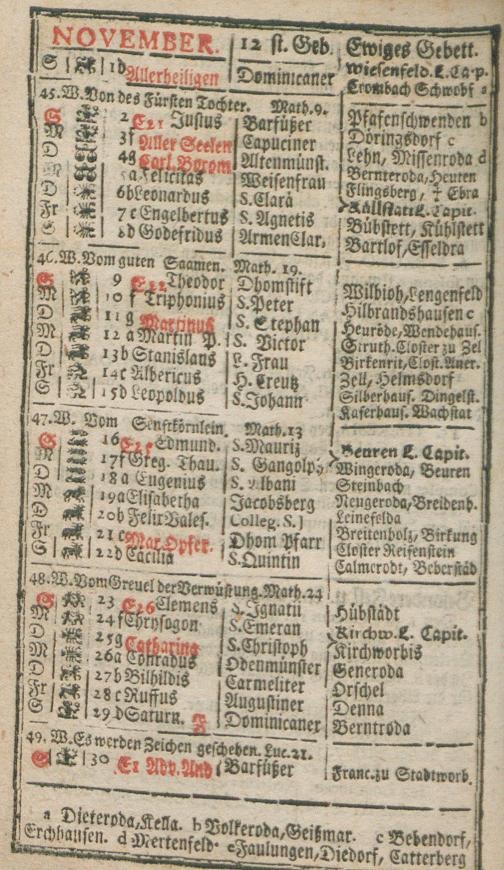 NOVEMBER. 12 st. Geb. Ewiges Gebett.
S 1 d Allerheiligen Dominicaner Wiesenfeld. L. Cap.
Crombach Schwobf a
45. W. Von des Fürsten Tochter. Math. 9.
S 2 E21 Justus Barfüßer Pfafenschwenden b
M 3 f Aller Seelen Capuciner Döringsdorf c
D 4 g Carl. Borom Altenmünst. Lehn, Missenroda d
M 5 a Felicitas Weisenfrau Bernteroda, Heuten
D 6 b Leonardus S. Clarä Flingsberg, ☩ Ebra
Fr 7 c Engelbertus S. Agnetis Kallstatt L. Capit.
S 8 d Godefridus ArmenClar, Bübstett, Kühlstett
Bartlof, Esseldra
46. W. Vom guten Saamen. Math. 19.
S 9 E22 Theodor Dhomstift Wilbich, Lengenfeld
M 10 f Triphonius S. Peter Hilbrandshausen c
D 11 g Martinus S. Stephan Heuröde, Wendehaus.
M 12 a Martin P. S. Victor Struth. Closter zu Zel
D 13 b Stanislaus L. Frau Birkenrit, Clost. Aner.
Fr 14 c Albericus H. Creutz Zell, Helmsdorf
S 15 d Leopoldus S. Johann Silberhaus. Dingelst.
Kaferhaus. Wachstat
47. W. Vom Senfkörnlein. Math. 13
S 16 Edmund. S. Mauriz Beuren L. Capit.
M 17 f Greg. Thau. S. Gangolp. Wingeroda, Beuren
D 18 a Eugenius S. Albani Steinbach
M 19 a Elisabetha Jacobsberg Neugeroda, Breidenh.
D 20 b Felix Vales. Colleg. S. J Leinefelda
Fr 21 c Mar. Opfer. Dhom Pfarr Breitenholz, Birkung
S 22 d Cäcilia S. Quintin Closter Reifenstein
Calmerodt, Beberstäd
48. W. Vom Greuel der Verwüstung. Math. 24
S 23 E26 Clemens S. Ignatii Hübstädt
M 24 f Chrysogon S. Emeran Kirchw. L. Capit.
D 25 g Catharina S. Christoph Kirchworbis
M 26 a Conradus Odenmünster Generoda
D 27 b Bilhildis Carmeliter Orschel
Fr 28 c Ruffus Augustiner Denna
S 29 d Saturn. F Dominicaner Berntroda
49. W. Es werden Zeichen geschehen. Luc. 21.
S 30 E1 Adv. And Barfüßer Franc. zu Stadtworb.
a Dieteroda, Kella. b Volkeroda, Geißmar. c Bebendorf,
Erchhausen. d Mertenfeld. e Faulungen, Diedorf, Catterberg